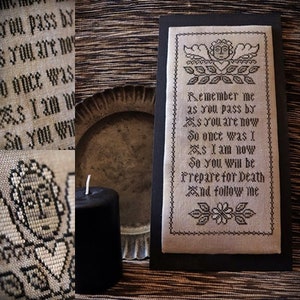 as you pass by
As you are now
So once was I
As I am now
So you will
Remember me
as you pass by
As you are now
So once was I
As I am now
So you will be
Prepare for Death
And follow me